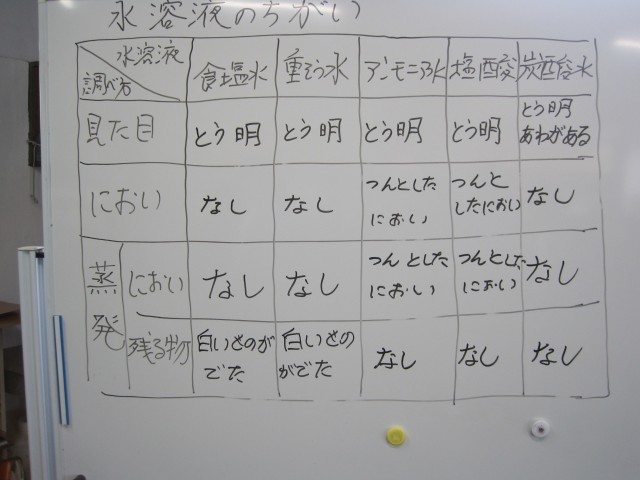 水溶液のちがい
水溶液
調べ方
食塩水 重そう水 アンモニア水 塩酸 炭酸水
見た目 とう明 とう明 とう明 とう明 とう明
あわがある
におい なし なし つんとした つんと なし
におい したにおい
蒸発 におい なし なし つんとした つんとした なし
におい におい
残る物 白いものが 白いもの なし なし なし
でた がでた